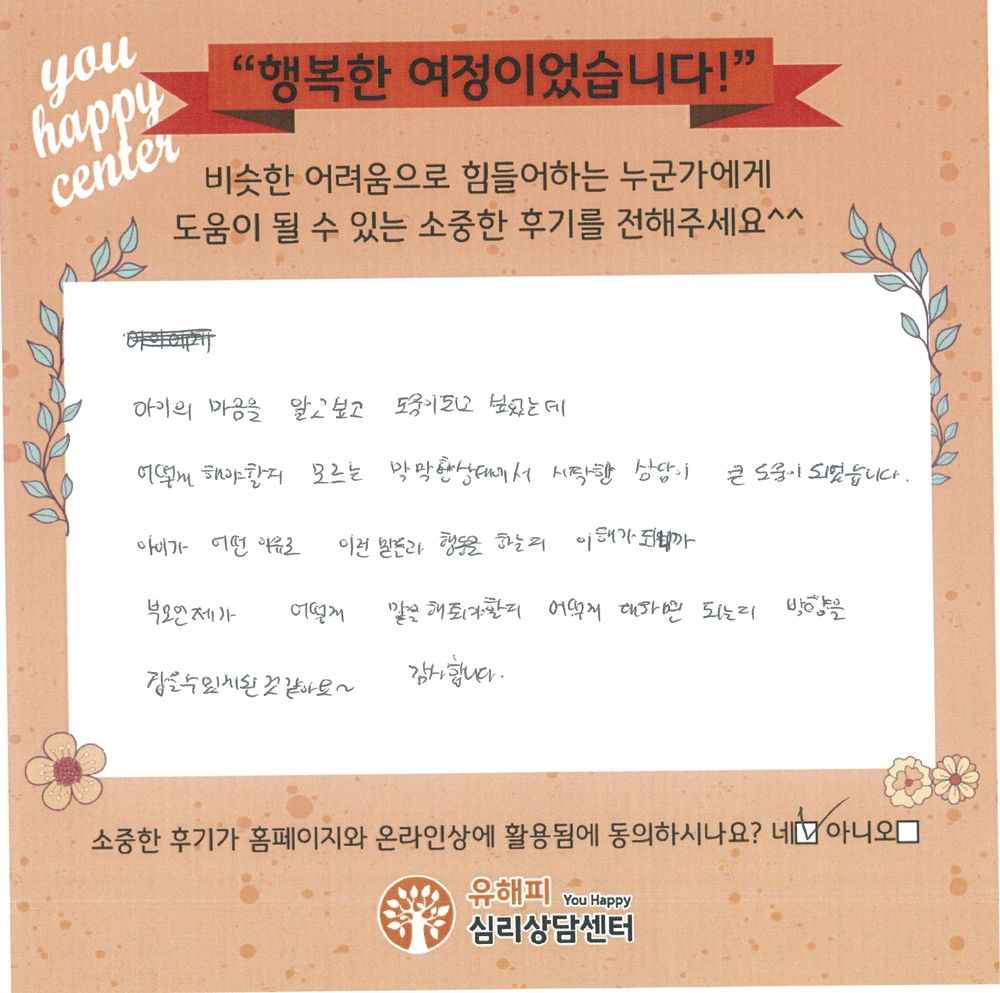 you
happy
center
“행복한 여정이었습니다!”
비슷한 어려움으로 힘들어하는 누군가에게
도움이 될 수 있는 소중한 후기를 전해주세요^^
아이의 마음을 알고싶고 도움이되고 싶었는데
어떻게 해야할지 모르는 막막한상태에서 시작한 상담이 큰 도움이 되었습니다.
아이가 어떤 이유로 이런 말들과 행동을 하는지 이해가 되니까
부모인 제가 어떻게 말을 해줘야할지 어떻게 대하면 되는지 방향을
잡을수있게된 것 같아요~ 감사합니다.
소중한 후기가 홈페이지와 온라인상에 활용됨에 동의하시나요? 네☑ 아니오□
유해피 You Happy
심리상담센터